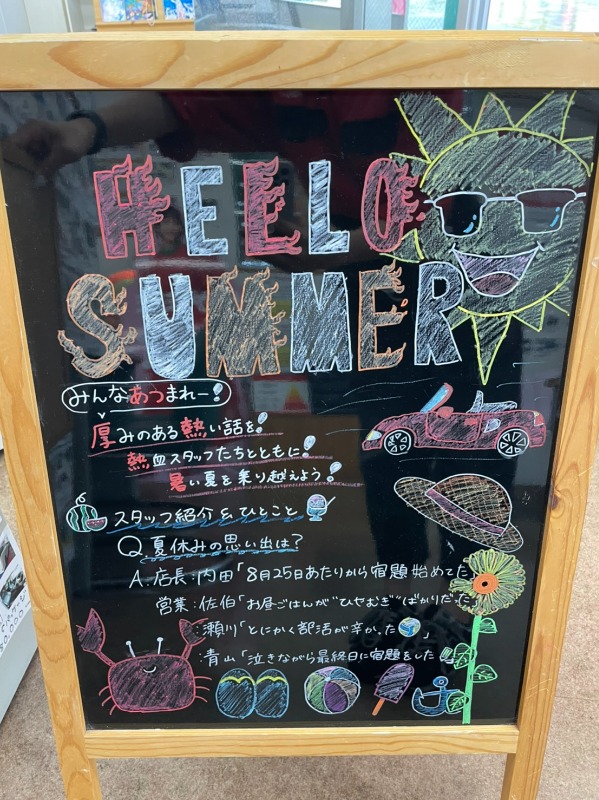 HELLO
SUMMER
みんなあつまれー!
厚みのある熱い話を!
熱血スタッフたちとともに!
暑い夏を乗り越えよう!
スタッフ紹介&ひとこと
Q.夏休みの思い出は?
A.店長:内田「8月25日あたりから宿題始めてた
営業:佐伯「お昼ごはんが"ひやむぎ"ばかりだった
:瀬川「とにかく部活が辛かった」
:青山「泣きながら最終日に宿題をした